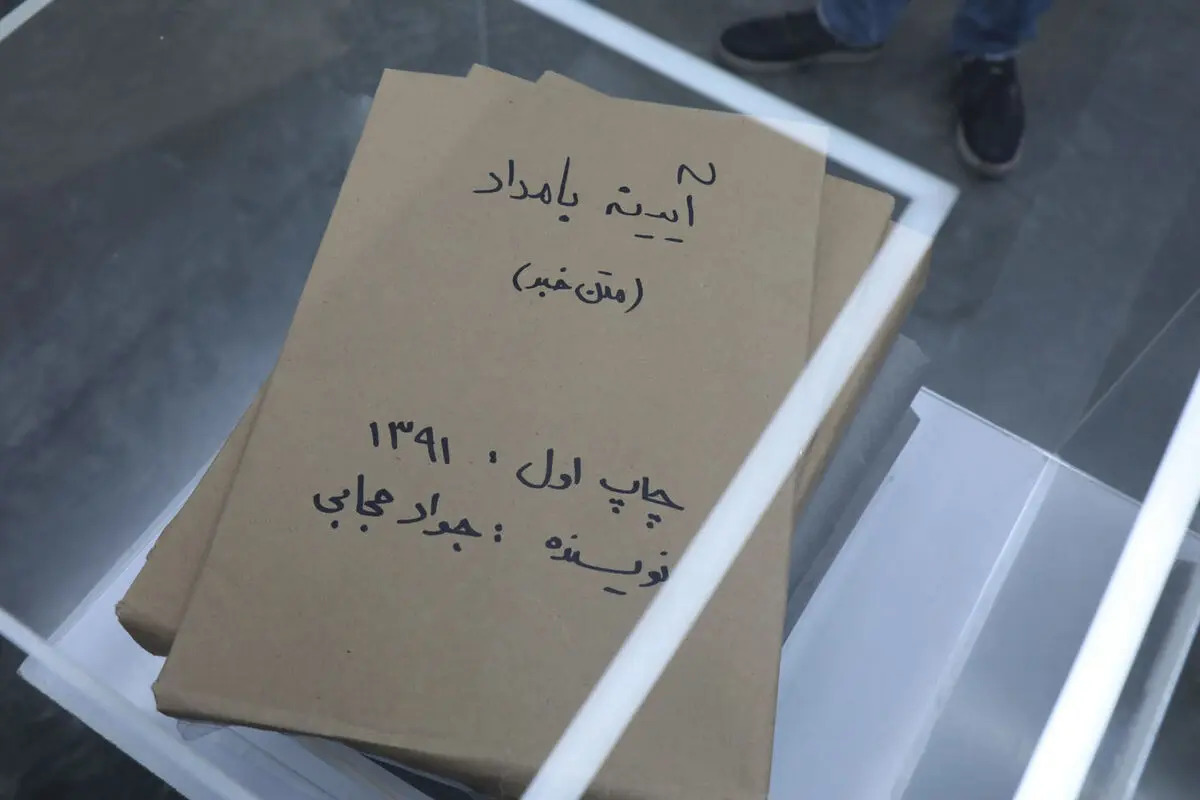 آیینه بامداد
(متن خبر)
چاپ اول : ۱۳۹۱
نویسنده : جواد مجابی